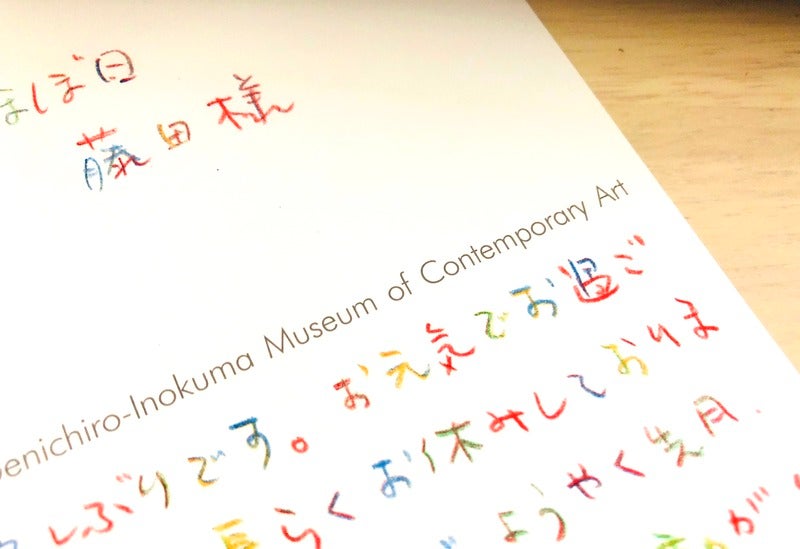 ほぼ日
藤田様
Genichiro-Inokuma Museum of Contemporary Art
しぶりです。お元気でお過ご
長らくお休みしておりま
ようやく先月、
が